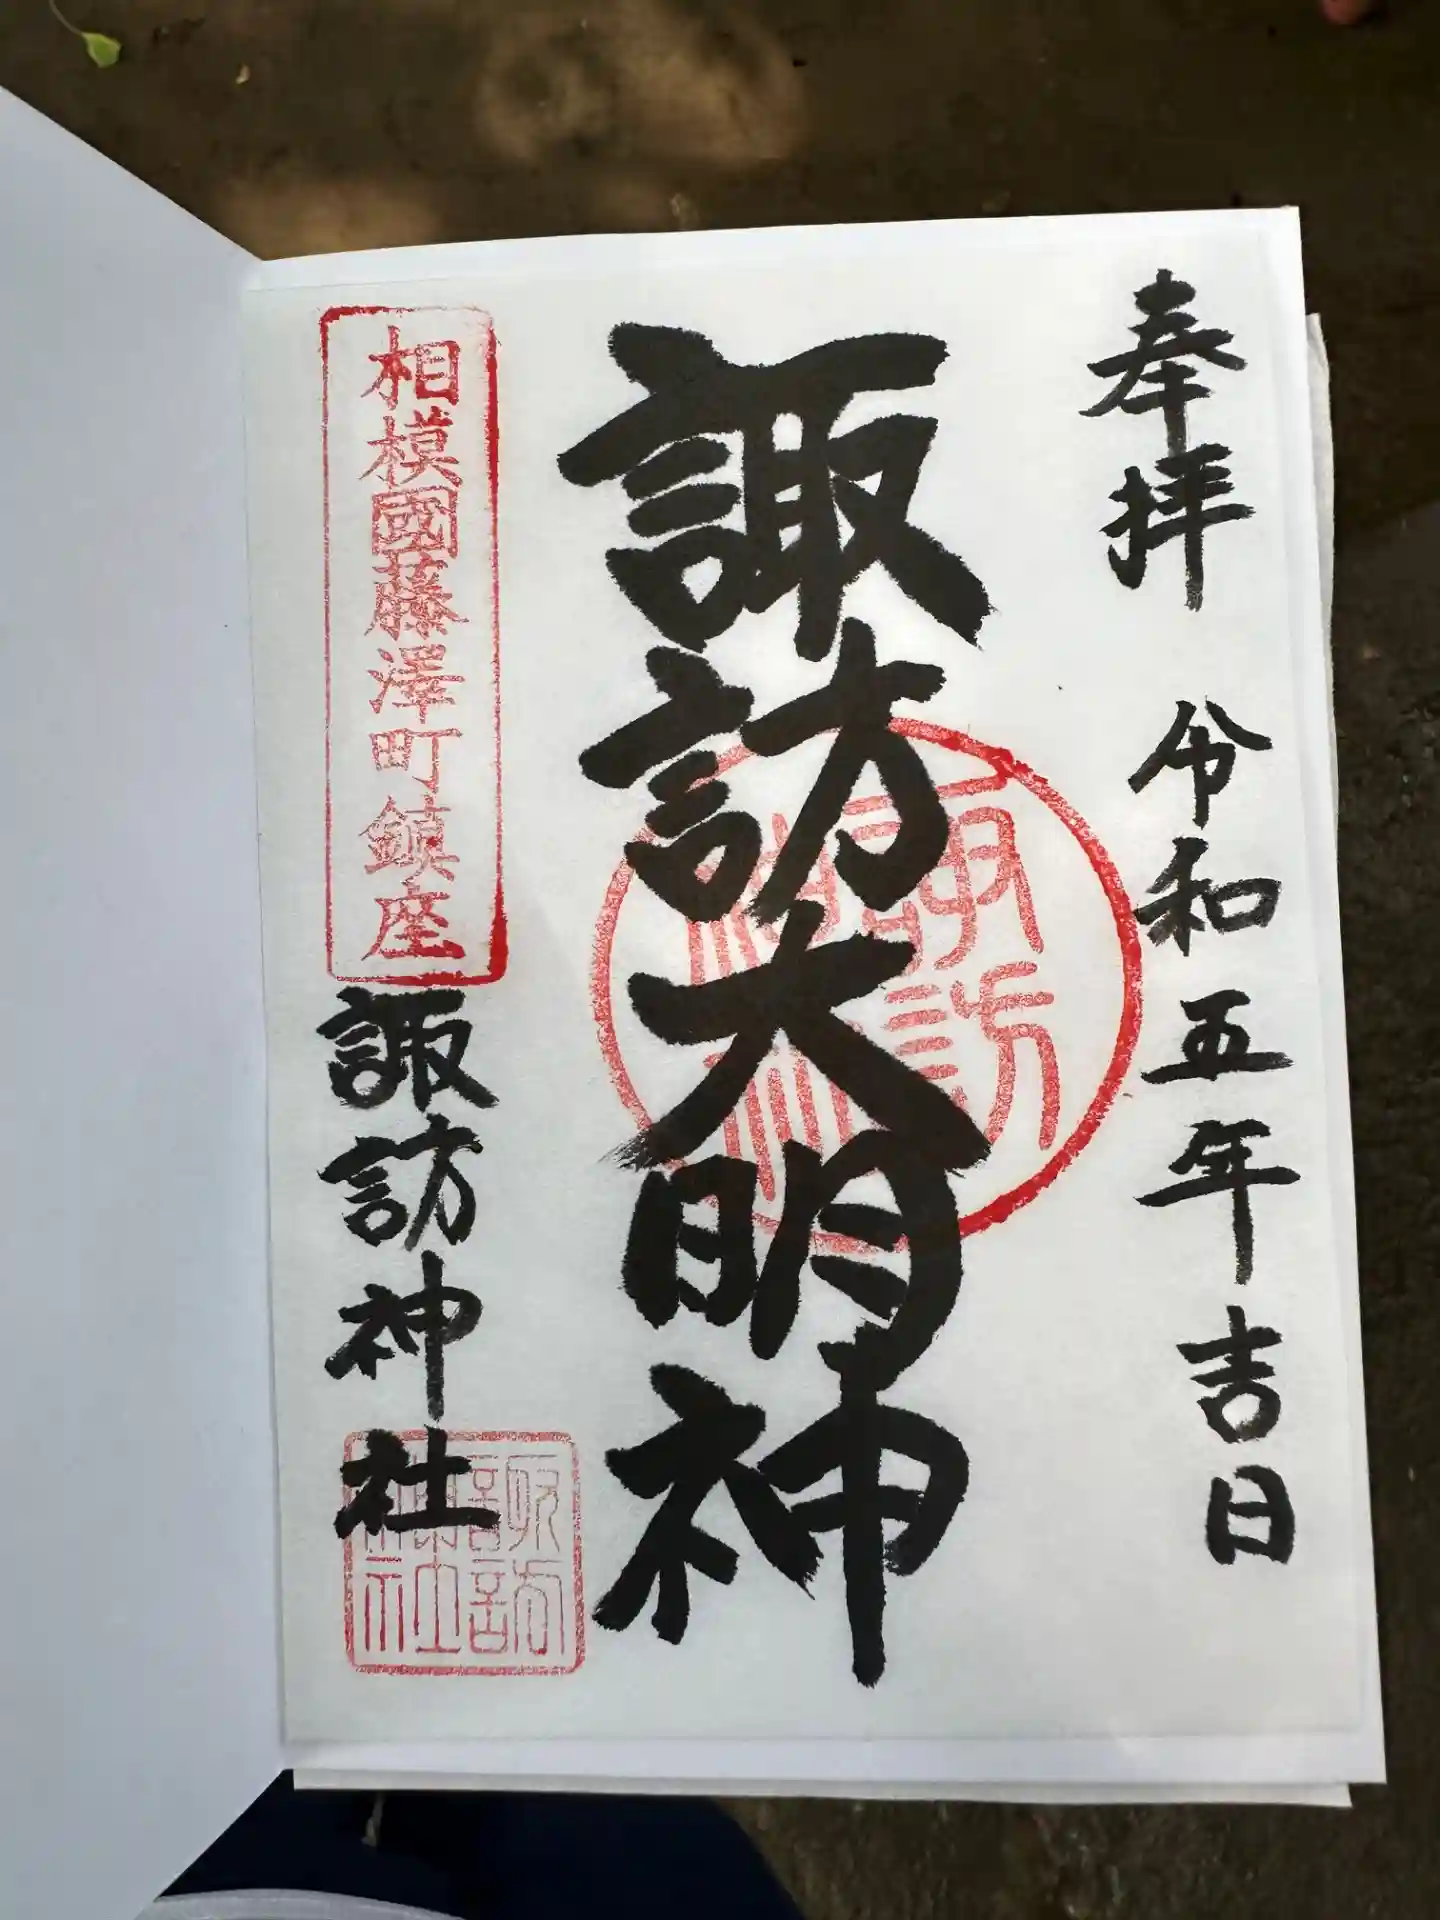 奉拝　令和五年吉日
諏訪大明神
相模國藤澤町鎮座
諏訪神社
諏訪
神社
諏訪
神社